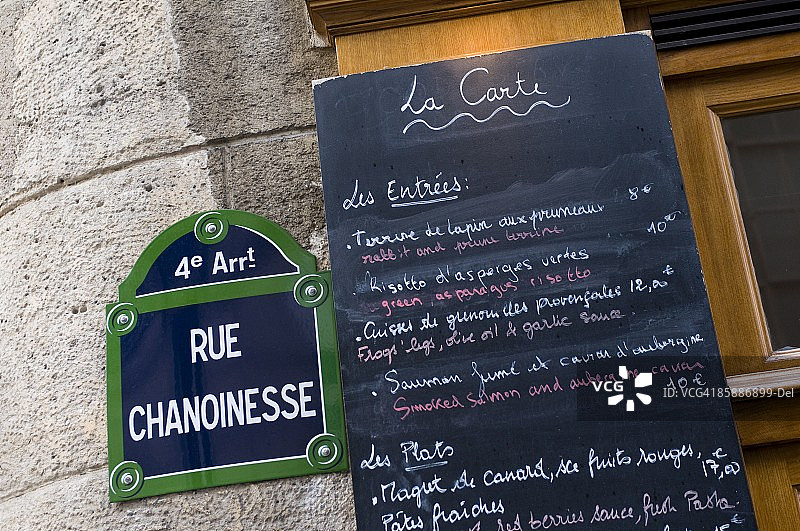 4e Arrt
RUE
CHANOINESSE
La Carte
Les Entrées:
• Terrine de lapin aux pruneaux 8€
rabbit and prune terrine 10€
• Risotto d'asperges vertes
green asparagus risotto
• Cuisses de grenouilles provençales 12,00€
Frogs' legs, olive oil & garlic sauce.
• Saumon fumé et caviar d'aubergine
Smoked salmon and aubergine caviar
10€
Les Plats
• Magret de canard, sce fruits rouges, €
Pâtes fraîches 17,00
red berries sauce, fresh Pasta
VCG
ID: VCG4185886899-Del